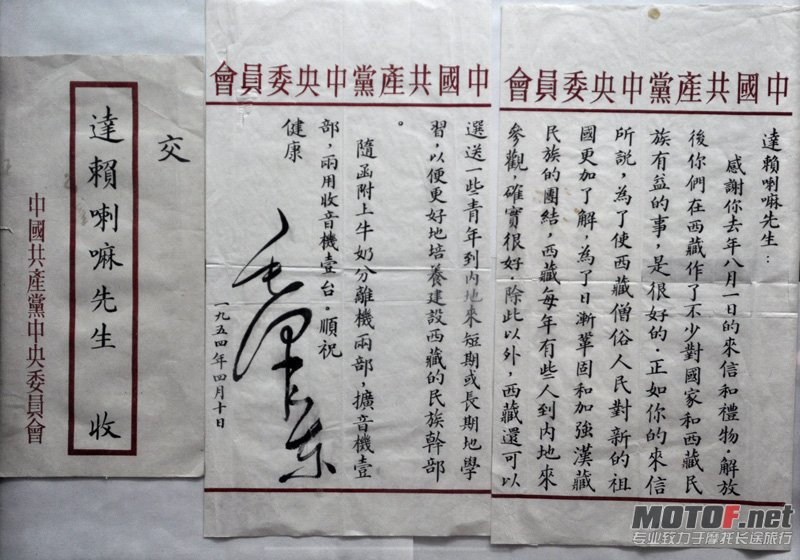 交
達賴喇嘛先生 收
中國共產黨中央委員會
中國共產黨中央委員會
達賴喇嘛先生：
感謝你去年八月一日的來信和禮物．解放
後你們在西藏作了不少對國家和西藏民
族有益的事，是很好的．正如你的來信
所說，為了使西藏僧俗人民對新的祖
國更加了解，為了日漸鞏固和加強漢藏
民族的團結，西藏每年有些人到內地來
參觀，確實很好．除此以外，西藏還可以
中國共產黨中央委員會
選送一些青年到內地來短期或長期地學
習，以便更好地培養建設西藏的民族幹部
。
隨函附上牛奶分離機兩部，擴音機壹
部，兩用收音機壹台．順祝
健康
毛澤東
一九五四年四月十日
MOTOF.net
专业致力于摩托长途旅行